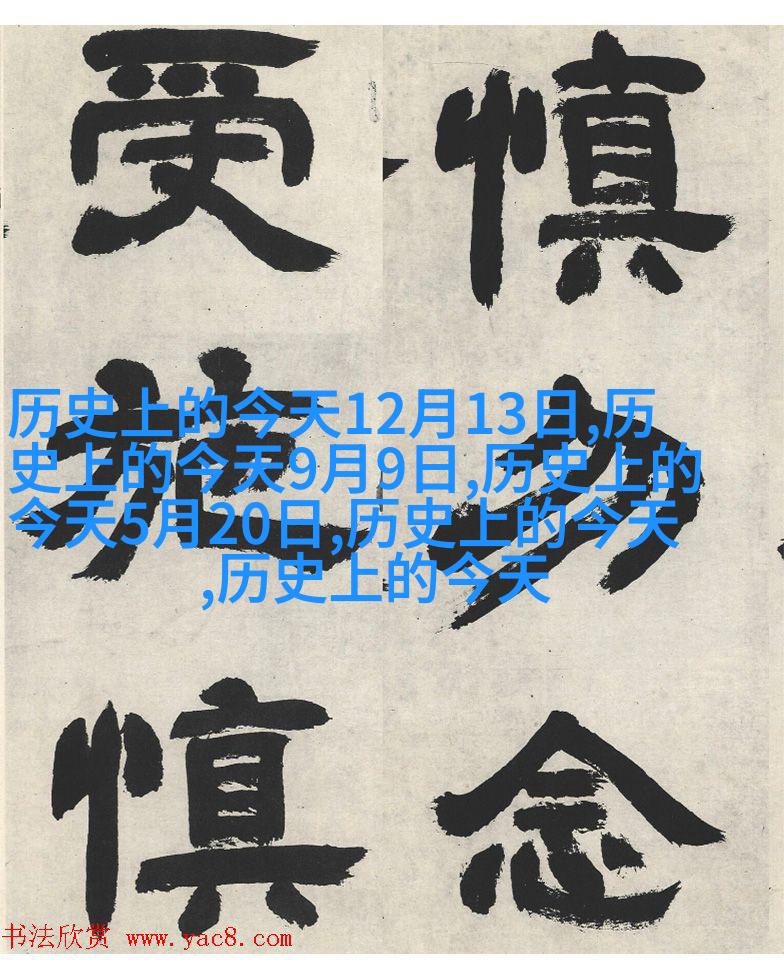 慎勿念
受施慎
历史上的今天12月13日,历
史上的今天9月9日,历史上的
今天5月20日,历史上的今天
,历史上的今天
书法欣赏 www.yac8.com